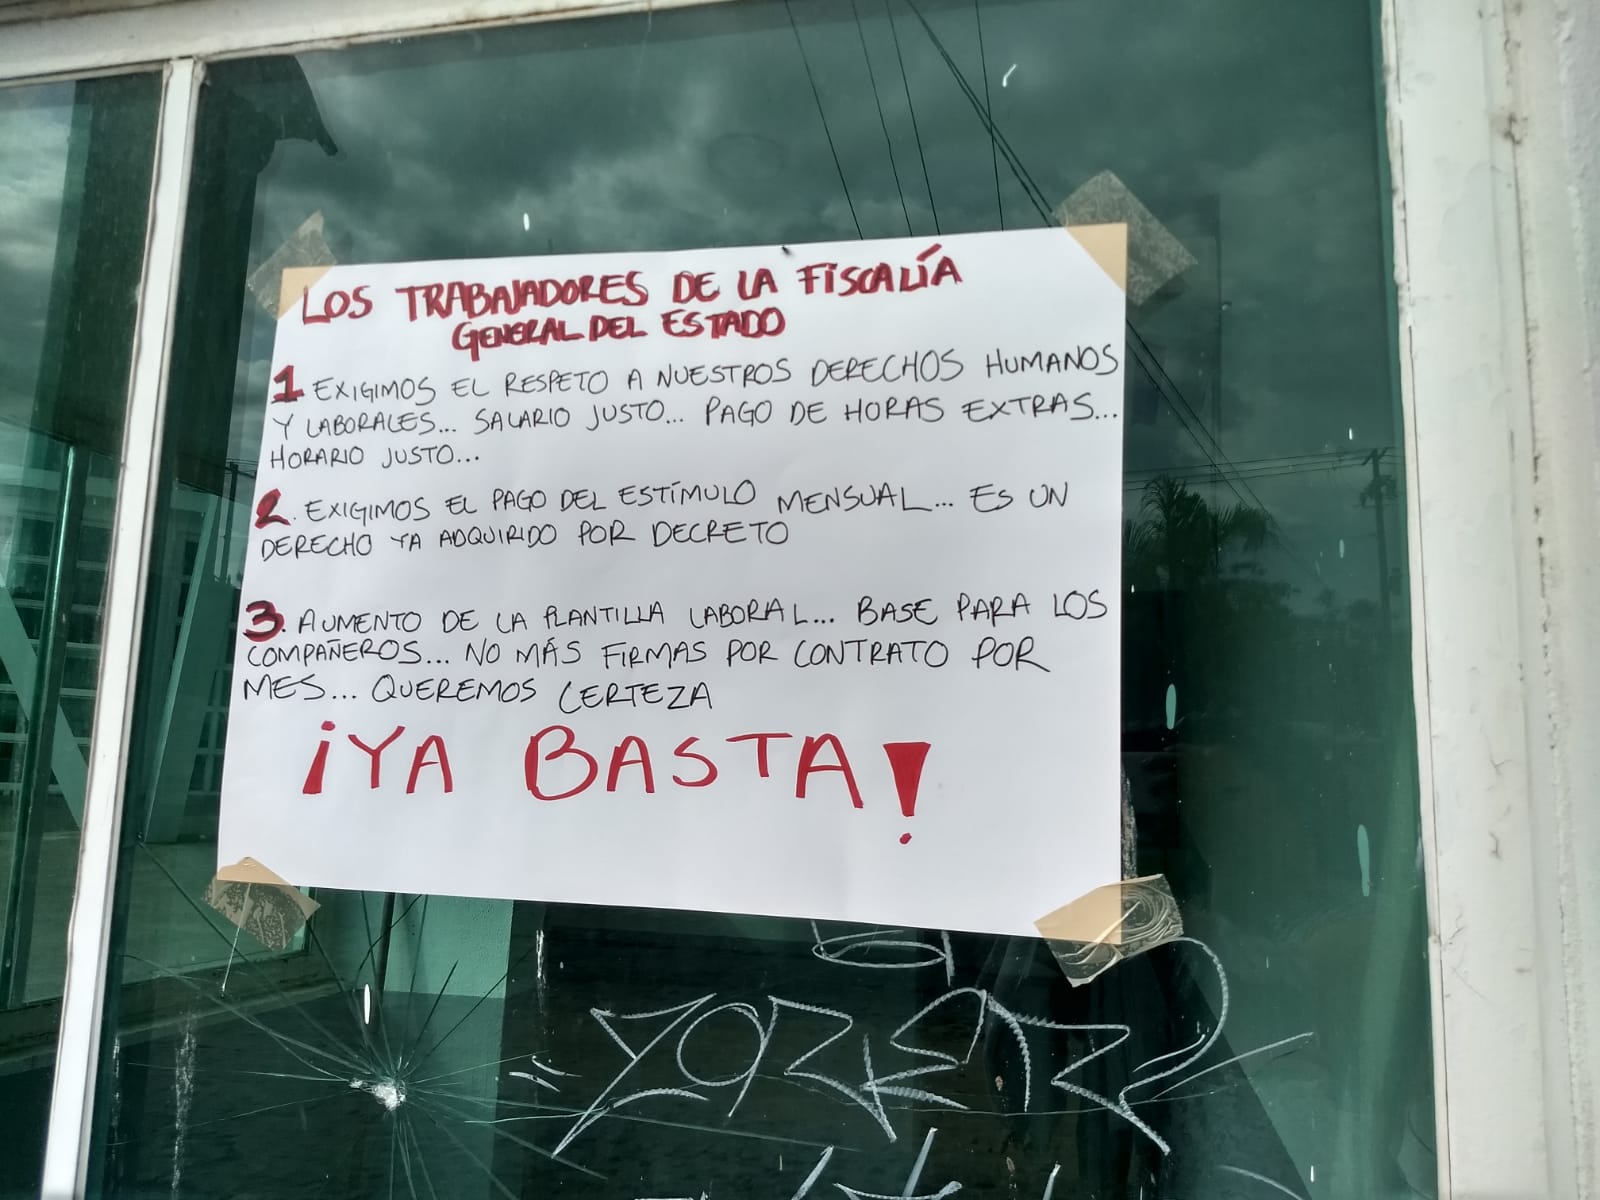 LOS TRABAJADORES DE LA FISCALÍA
GENERAL DEL ESTADO
1 EXIGIMOS EL RESPETO A NUESTROS DERECHOS HUMANOS
Y LABORALES... SALARIO JUSTO... PAGO DE HORAS EXTRAS...
HORARIO JUSTO...
2. EXIGIMOS EL PAGO DEL ESTÍMULO MENSUAL... ES UN
DERECHO YA ADQUIRIDO POR DECRETO
3. AUMENTO DE LA PLANTILLA LABORAL... BASE PARA LOS
COMPAÑEROS... NO MÁS FIRMAS POR CONTRATO POR
MES... QUEREMOS CERTEZA
¡YA BASTA!